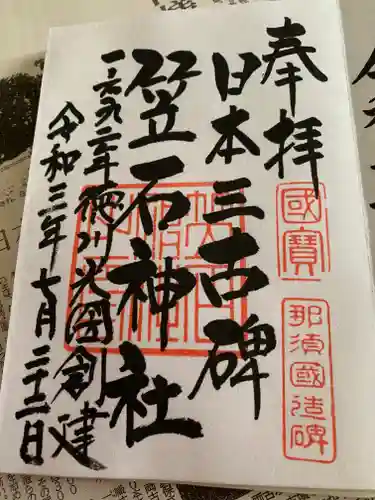 奉拝
國寶
那須國造碑
日本三古碑
笠石神社
一六九二年徳川光圀創建
令和三年七月二十二日